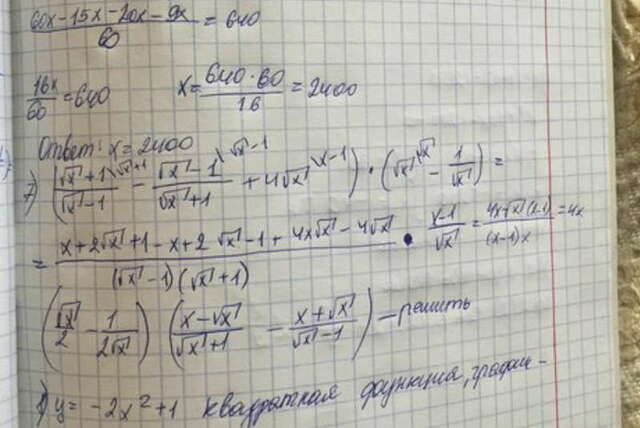 (60x-15x-20x-9x)/60 = 640
16x/60 = 640    x = 640·60/16 = 2400
Ответ: x = 2400
7) ((√x+1)/(√x-1) \√x+1 - (√x-1)/(√x+1) \√x-1 + 4√x \x-1) · (√x \√x - 1/√x) =
= (x+2√x+1-x+2√x-1+4x√x-4√x)/((√x-1)(√x+1)) · (x-1)/√x = 4x·√x(x-1)/((x-1)x) = 4x
(√x/2 - 1/(2√x)) ((x-√x)/(√x+1) - (x+√x)/(√x-1)) - решить
y = -2x²+1 квадратная функция, график -